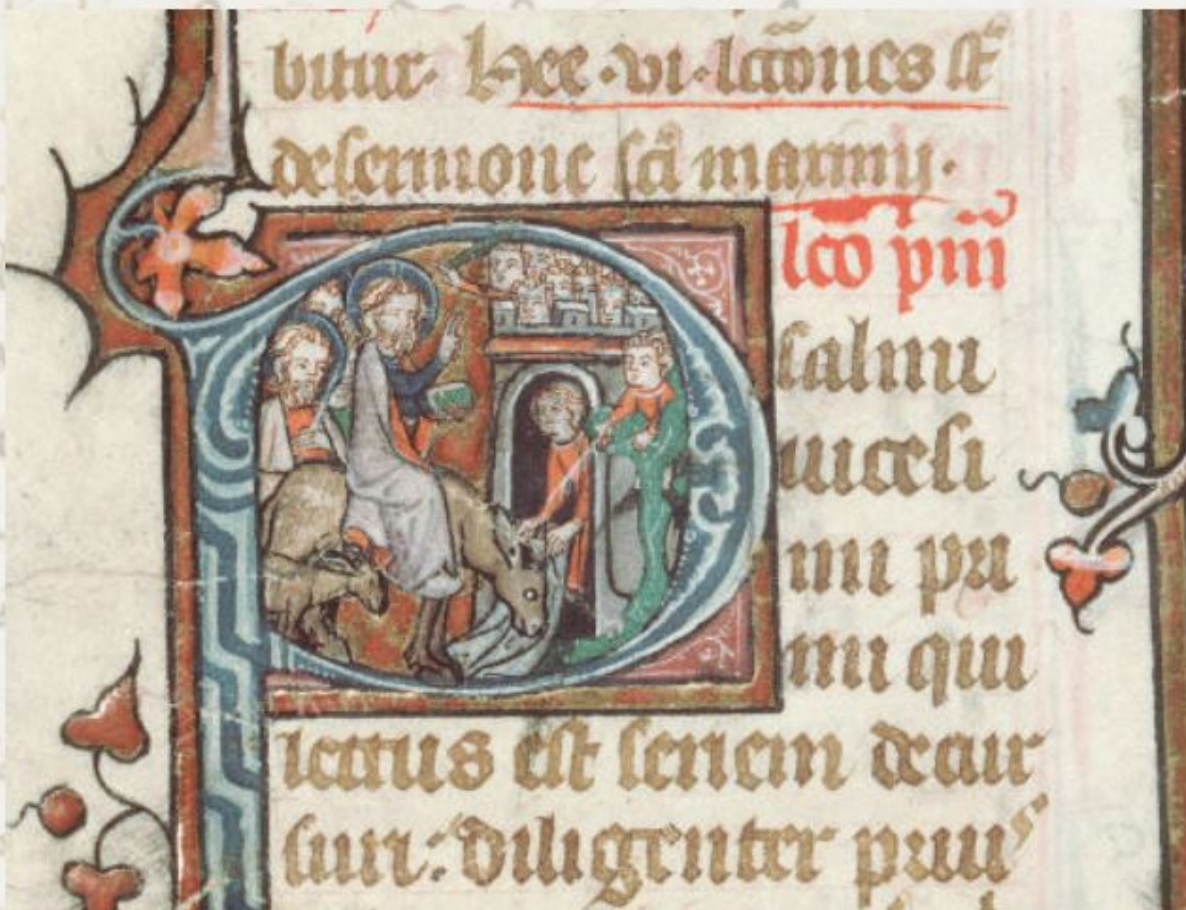 bitur. Hee .vi. lcc̃ones st̃
de sermone sc̃i maximi.
lc̃o pri
Psalmi
uicesi
mi pri
mi qui
lectus est seriem decur
suri: diligenter prius